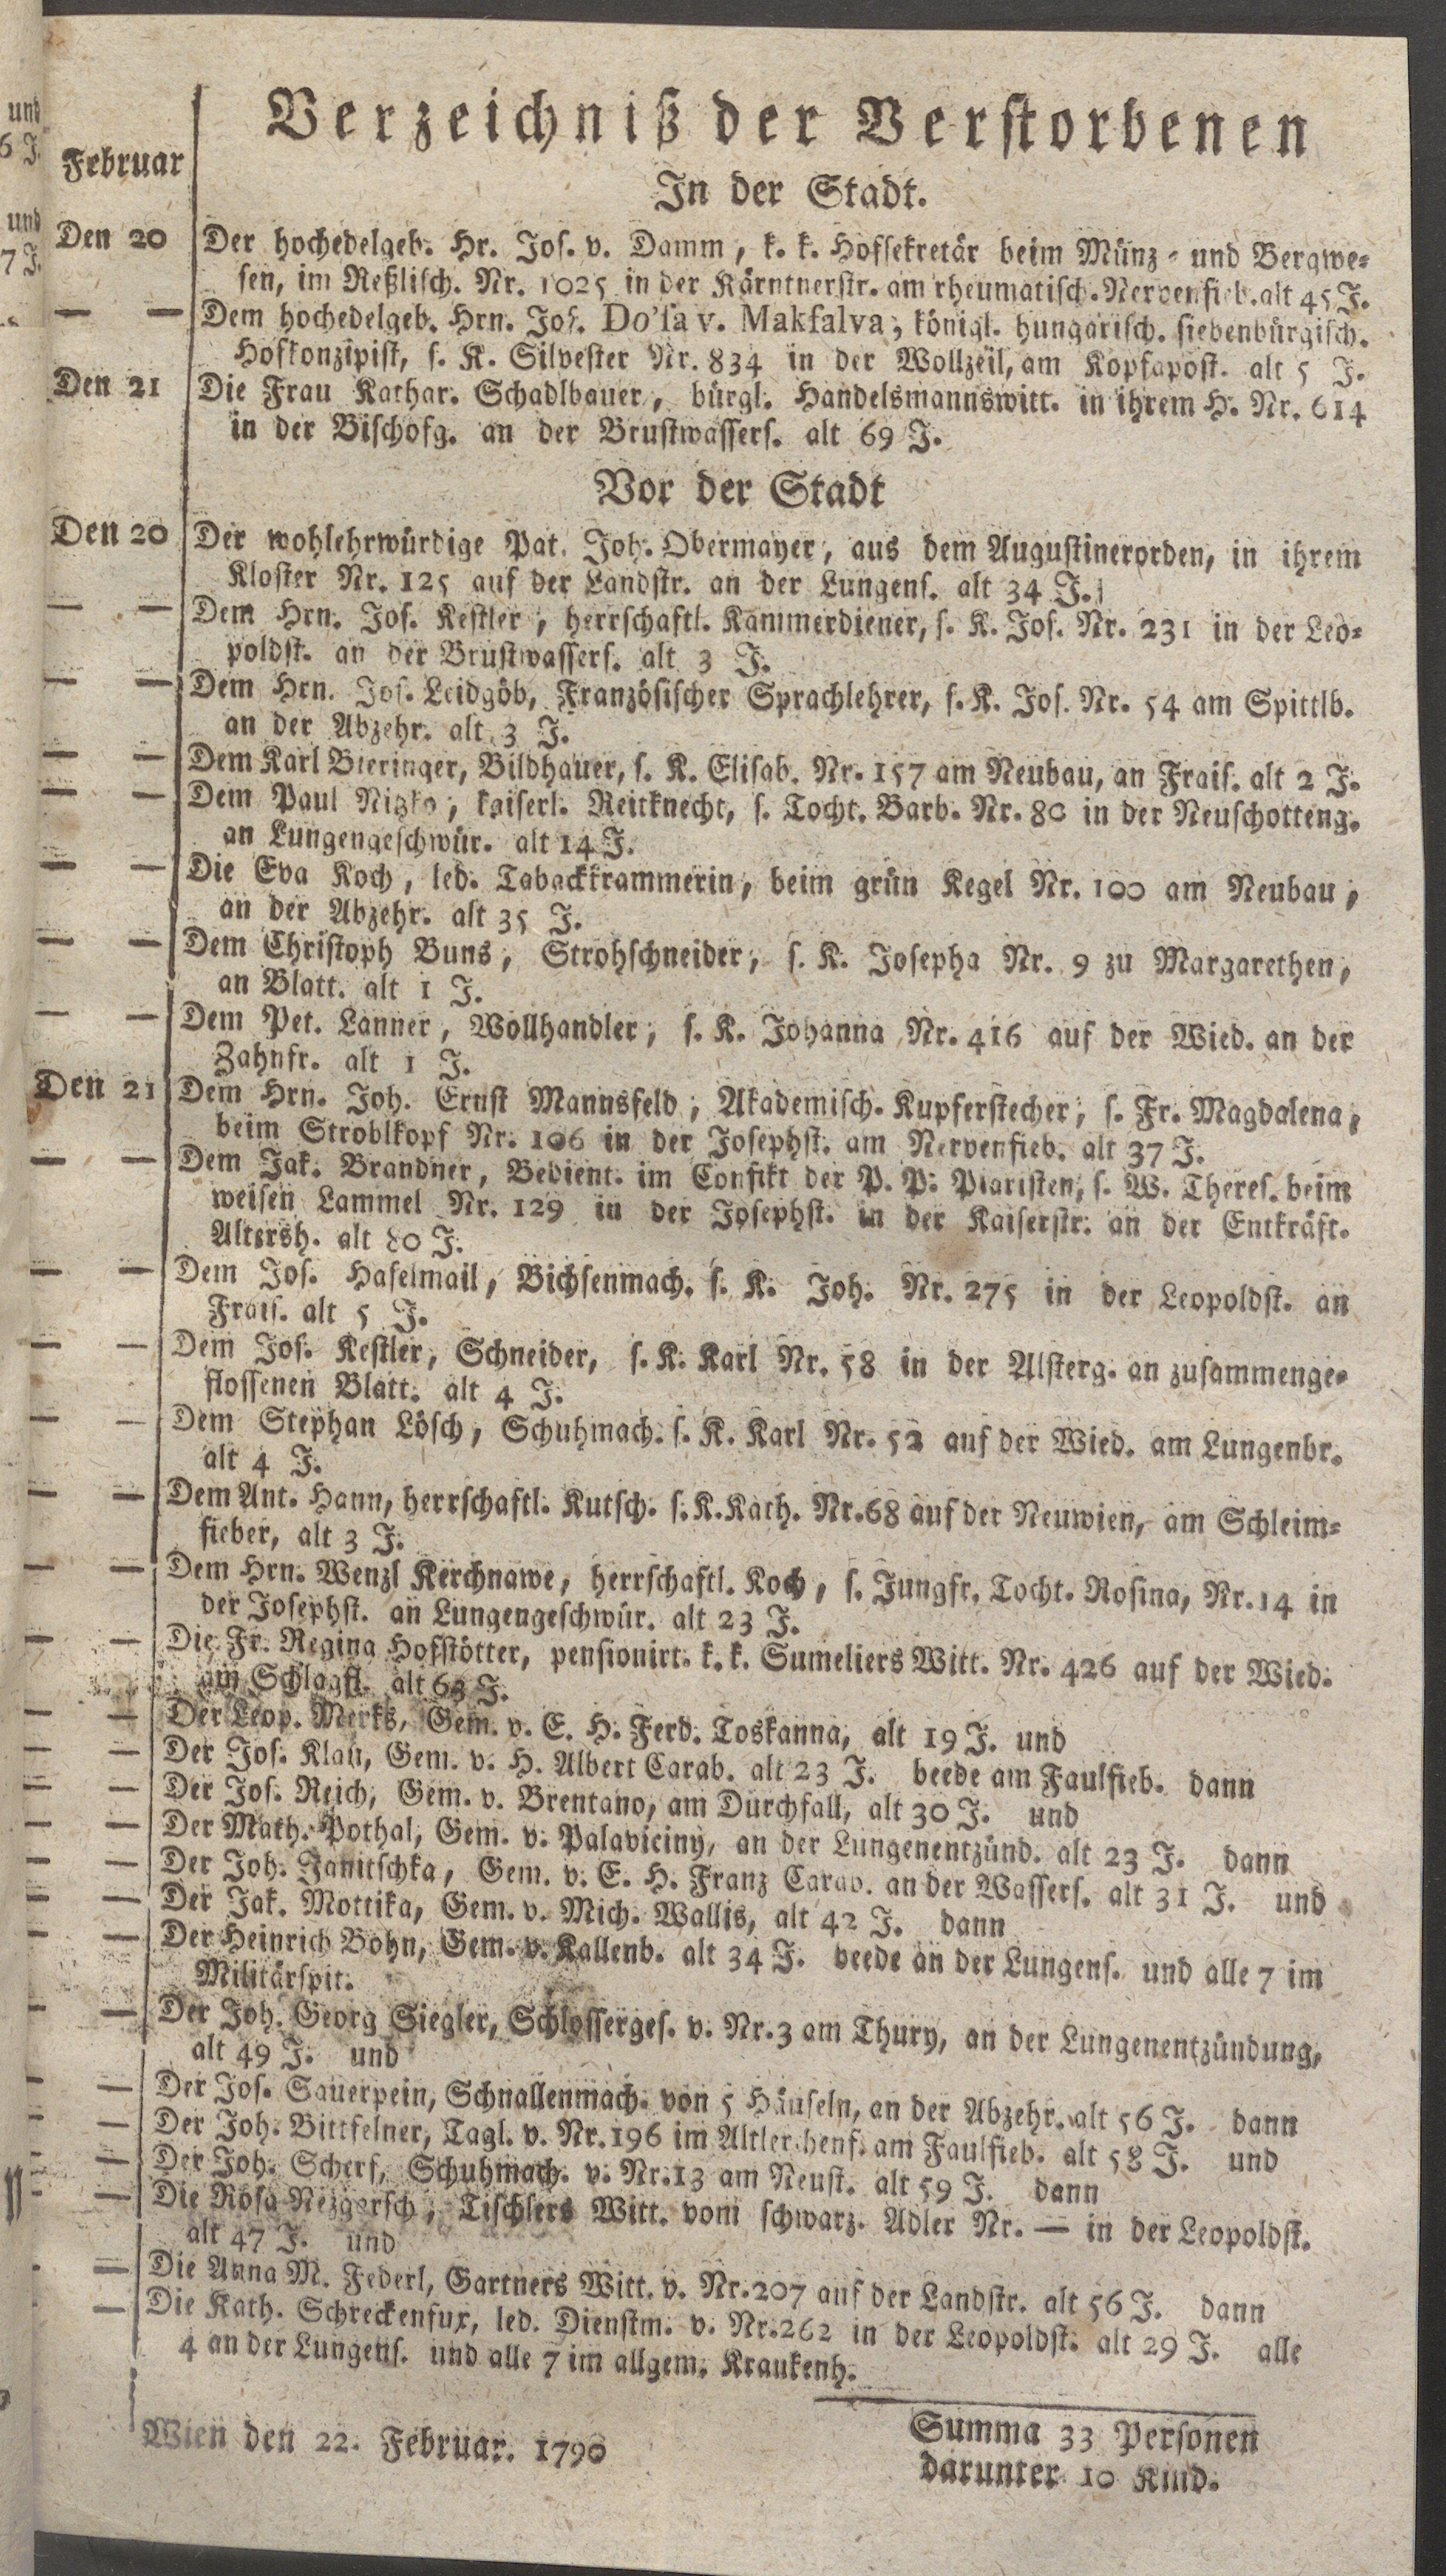 Verzeichniß der Verstorbenen
Februar
In der Stadt.
Den 20 Der hochedelgeb. Hr. Jos. v. Damm, k. k. Hofsekretär beim Münz- und Bergwe-
sen, im Reßlisch. Nr. 1025 in der Kärntnerstr. am rheumatisch. Nervenfieb. alt 45 J.
— — Dem hochedelgeb. Hrn. Jos. Do'sa v. Makfalva, königl. hungarisch. siebenbürgisch.
Hofkonzipist, s. K. Silvester Nr. 834 in der Wollzeil, am Kopfapost. alt 5 J.
Den 21 Die Frau Kathar. Schadlbauer, bürgl. Handelsmannswitt. in ihrem H. Nr. 614
in der Bischofg. an der Brustwassers. alt 69 J.
Vor der Stadt
Den 20 Der wohlehrwürdige Pat. Joh. Obermayer, aus dem Augustinerorden, in ihrem
Kloster Nr. 125 auf der Landstr. an der Lungens. alt 34 J.
— — Dem Hrn. Jos. Kestler, herrschaftl. Kammerdiener, s. K. Jos. Nr. 231 in der Leo-
poldst. an der Brustwassers. alt 3 J.
— — Dem Hrn. Jos. Leidgöb, Französischer Sprachlehrer, s. K. Jos. Nr. 54 am Spittlb.
an der Abzehr. alt 3 J.
— — Dem Karl Bieringer, Bildhauer, s. K. Elisab. Nr. 157 am Neubau, an Frais. alt 2 J.
— — Dem Paul Nitzko, kaiserl. Reitknecht, s. Tocht. Barb. Nr. 80 in der Neuschotteng.
an Lungengeschwür. alt 14 J.
— — Die Eva Koch, led. Tabackkrammerin, beim grün Kegel Nr. 100 am Neubau,
an der Abzehr. alt 35 J.
— — Dem Christoph Buns, Strohschneider, s. K. Josepha Nr. 9 zu Margarethen,
an Blatt. alt 1 J.
— — Dem Pet. Lanner, Wollhandler, s. K. Johanna Nr. 416 auf der Wied. an der
Zahnfr. alt 1 J.
Den 21 Dem Hrn. Joh. Ernst Mannsfeld, Akademisch. Kupferstecher, s. Fr. Magdalena,
beim Stroblkopf Nr. 106 in der Josephst. am Nervenfieb. alt 37 J.
— — Dem Jak. Brandner, Bedient. im Confikt der P. P. Piaristen, s. W. Theres. beim
weisen Lammel Nr. 129 in der Josephst. in der Kaiserstr. an der Entkräft.
Altersh. alt 80 J.
— — Dem Jos. Haselmail, Bichsenmach. s. K. Joh. Nr. 275 in der Leopoldst. an
Frais. alt 5 J.
— — Dem Jos. Kestler, Schneider, s. K. Karl Nr. 58 in der Alsterg. an zusammenge-
flossenen Blatt. alt 4 J.
— — Dem Stephan Lösch, Schuhmach. s. K. Karl Nr. 52 auf der Wied. am Lungenbr.
alt 4 J.
— — Dem Ant. Hann, herrschaftl. Kutsch. s. K. Kath. Nr. 68 auf der Neuwien, am Schleim-
fieber, alt 3 J.
— — Dem Hrn. Wenzl Kerchnawe, herrschaftl. Koch, s. Jungfr. Tocht. Rosina, Nr. 14 in
der Josephst. an Lungengeschwür. alt 23 J.
— — Die Fr. Regina Hofstötter, pensionirt. k. k. Sumeliers Witt. Nr. 426 auf der Wied.
am Schlagfl. alt 63 J.
— — Der Leop. Merks, Gem. v. E. H. Ferd. Toskanna, alt 19 J. und
— — Der Jos. Klau, Gem. v. H. Albert Carab. alt 23 J. beede am Faulfieb. dann
— — Der Jos. Reich, Gem. v. Brentano, am Durchfall, alt 30 J. und
— — Der Math. Pothal, Gem. v. Palaviciny, an der Lungenentzünd. alt 23 J. dann
— — Der Joh. Janitschka, Gem. v. E. H. Franz Carab. an der Wassers. alt 31 J. und
— — Der Jak. Mottika, Gem. v. Mich. Wallis, alt 42 J. dann
— — Der Heinrich Bohn, Gem. v. Kallenb. alt 34 J. beede an der Lungens. und alle 7 im
Militärspit.
— — Der Joh. Georg Siegler, Schlosserges. v. Nr. 3 am Thury, an der Lungenentzündung,
alt 49 J. und
— — Der Jos. Sauerpein, Schnallenmach. von 5 Häuseln, an der Abzehr. alt 56 J. dann
— — Der Joh. Bittfelner, Tagl. v. Nr. 196 im Altlerchenf. am Faulfieb. alt 58 J. und
— — Der Joh. Scherf, Schuhmach. v. Nr. 13 am Neust. alt 59 J. dann
— — Die Rosa Neizgersch, Tischlers Witt. vom schwarz. Adler Nr. — in der Leopoldst.
alt 47 J. und
— — Die Anna M. Federl, Gartners Witt. v. Nr. 207 auf der Landstr. alt 56 J. dann
— — Die Kath. Schreckenfux, led. Dienstm. v. Nr. 262 in der Leopoldst. alt 29 J. alle
4 an der Lungens. und alle 7 im allgem. Kraukenh.
Wien den 22. Februar. 1790
Summa 33 Personen
darunter 10 Kind.